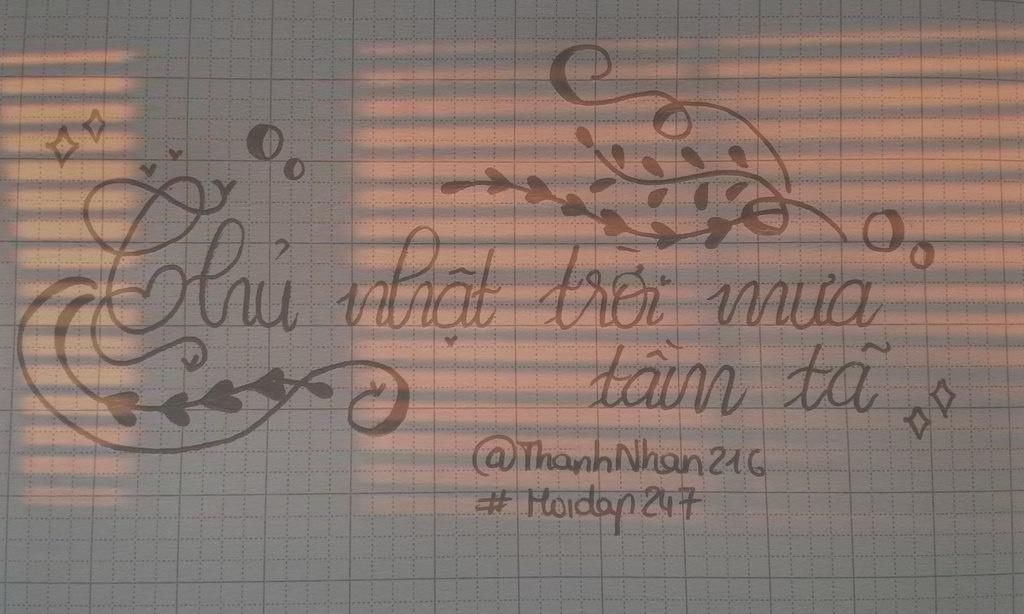 Chủ nhật trời mưa
tầm tã
@ThanhNhan216
# Hoidap247